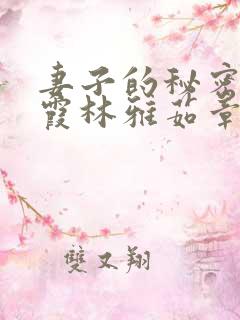 妻子的秘密
霞林雅茹章
雙又翔